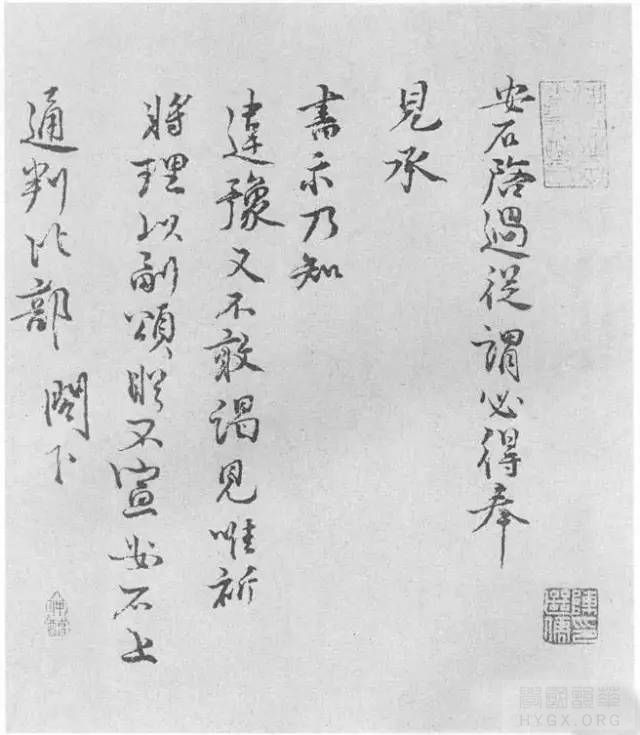 安石啓過從謂必得奉
見承
書示乃知
違豫又不敢謁見唯祈
將理以副頌不宣安石上
通判比部 閣下
學國韻華
HYGX.ORG